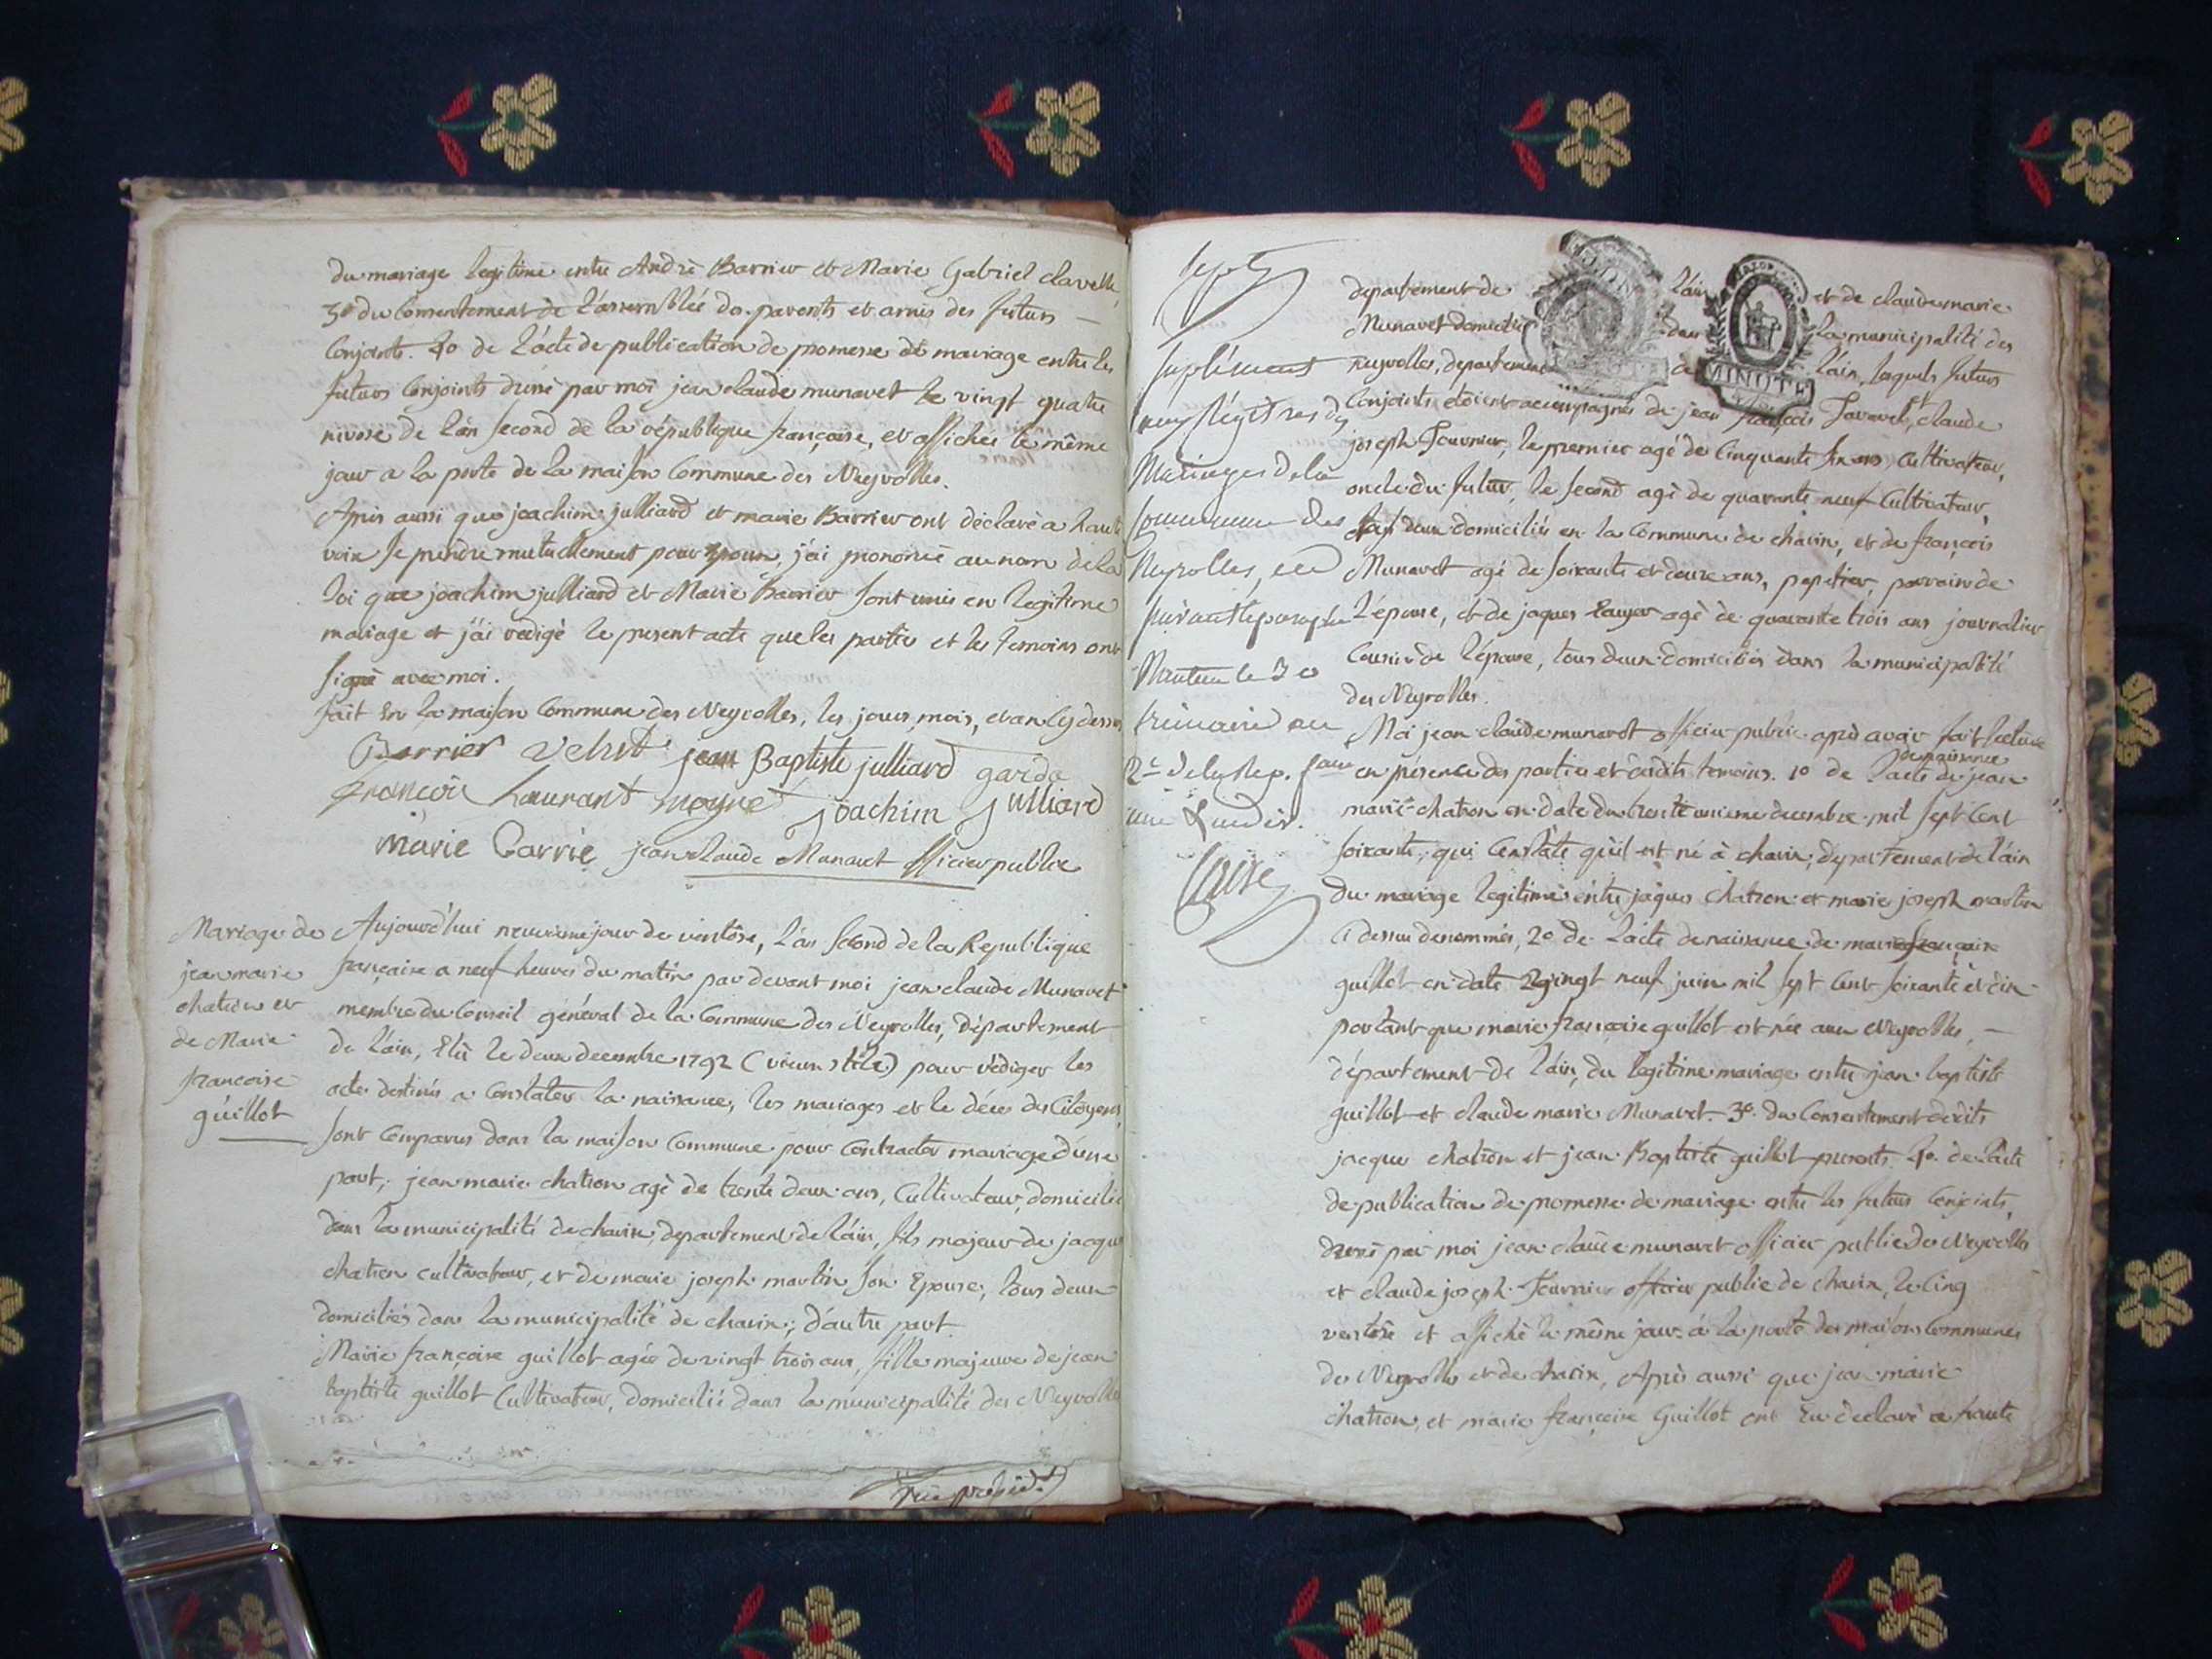 du mariage legitime entre André Barrier et Marie Gabriel clavelle,
3º du Consentement de l'assemblée de parents et amis des futurs —
Conjoints. 4º de l'acte de publication de promesse de mariage entre les
futurs Conjoints dressé par moi jean claude munavet le vingt quatre
nivose de l'an second de la république françoise, et affichée le même
jour a la porte de la maison Commune des Neyrolles.
Après aussi que joachim julliard et marie Barrier ont déclaré a haute
voix se prendre mutuellement pour Epoux, j'ai prononcé au nom de la
loi que joachim julliard et Marie Barrier sont unis en legitime
mariage et j'ai redigé le present acte que les parties et les temoins ont
signé avec moi.
fait En la maison Commune des Neyrolles, les jour, mois, et an cy dessus
Barrier jean Baptiste julliard garde
francois Laurant moyne joachim julliard
marie Barrie jean claude Munavet officier public
Mariage de
jean marie
chatron et
de Marie
francoise
guillot
Aujourd'hui neuvieme jour de ventôse, l'an second de la Republique
françaixe a neuf heures du matin par devant moi jean claude Munavet
membre du Conseil général de la Commune des Neyrolles, Département
de l'ain, Elû le deux decembre 1792 (vieux stile) pour rédiger les
actes destinés a Constater la naissance, les mariages et le décès des Citoyens,
sont Comparus dans la maison Commune pour Contracter mariage d'une
part, jean marie chatron agé de trente deux ans, Cultivateur, domicilié
dans la municipalité de charix, departement de l'ain, fils majeur de jacque
chatron cultivateur, et de marie joseph martin son Epouse, tous deux
domiciliés dans la municipalité de charix; d'autre part
Marie françoise guillot agée de vingt trois ans, fille majeure de jean
baptiste guillot Cultivateur, domicilié dans la municipalité des Neyrolles
Suplément
aux Régistres des
Mariages de la
Commune des
Neyrolles,
Nantua le 30
frimaire an
2e de la Rep. fran
une & indiv.
departement de l'ain et de claude marie
Munavet domiciliés dans la municipalité des
neyrolles, departement de l'ain, lesquels futurs
Conjoints étoient accompagnés de jean françois Favavet, claude
joseph Fournier, le premier agé de Cinquante six ans Cultivateur,
oncle du futur, le second agé de quarante neuf Cultivateur,
tous deux domiciliés en la Commune de charix, et de françois
Munavet agé de soixante et douze ans, papetier, parrain de
l'épouse, et de jaques agé de quarante trois ans journalier
Cousin de l'épouse, tous deux domiciliés dans la municipalité
des Neyrolles.
Moi jean claude munavet officier public après avoir fait lecture
en présence des parties et desdits temoins. 1º de l'acte de naissance de jean
marie chatron en date du trente unieme decembre mil sept Cent
soixante, qui Constate qu'il est né à charix, departement de l'ain
du mariage legitime entre jaques Chatron et marie joseph martin
Ci dessus denommés, 2º de l'acte de naissance de marie françoise
guillot en date vingt neuf juin mil sept Cent soixante et dix
portant que marie françoise guillot est née aux Neyrolles, —
département de l'ain, du legitime mariage entre jean baptiste
guillot et claude marie Munavet. 3º. du Consentement desdits
jacque chatron et jean Baptiste guillot presents 4º. de l'acte
de publication de promesse de mariage entre les futurs Conjoints,
dressé par moi jean claude munavet officier public des Neyrolles
et claude joseph Fournier officier public de charix, le Cinq
ventôse et affiché le même jour à la porte des maisons Communes
des Neyrolles et de charix, Après aussi que jean marie
chatron, et marie françoise Guillot ont Eu declaré a haute
MINUTE